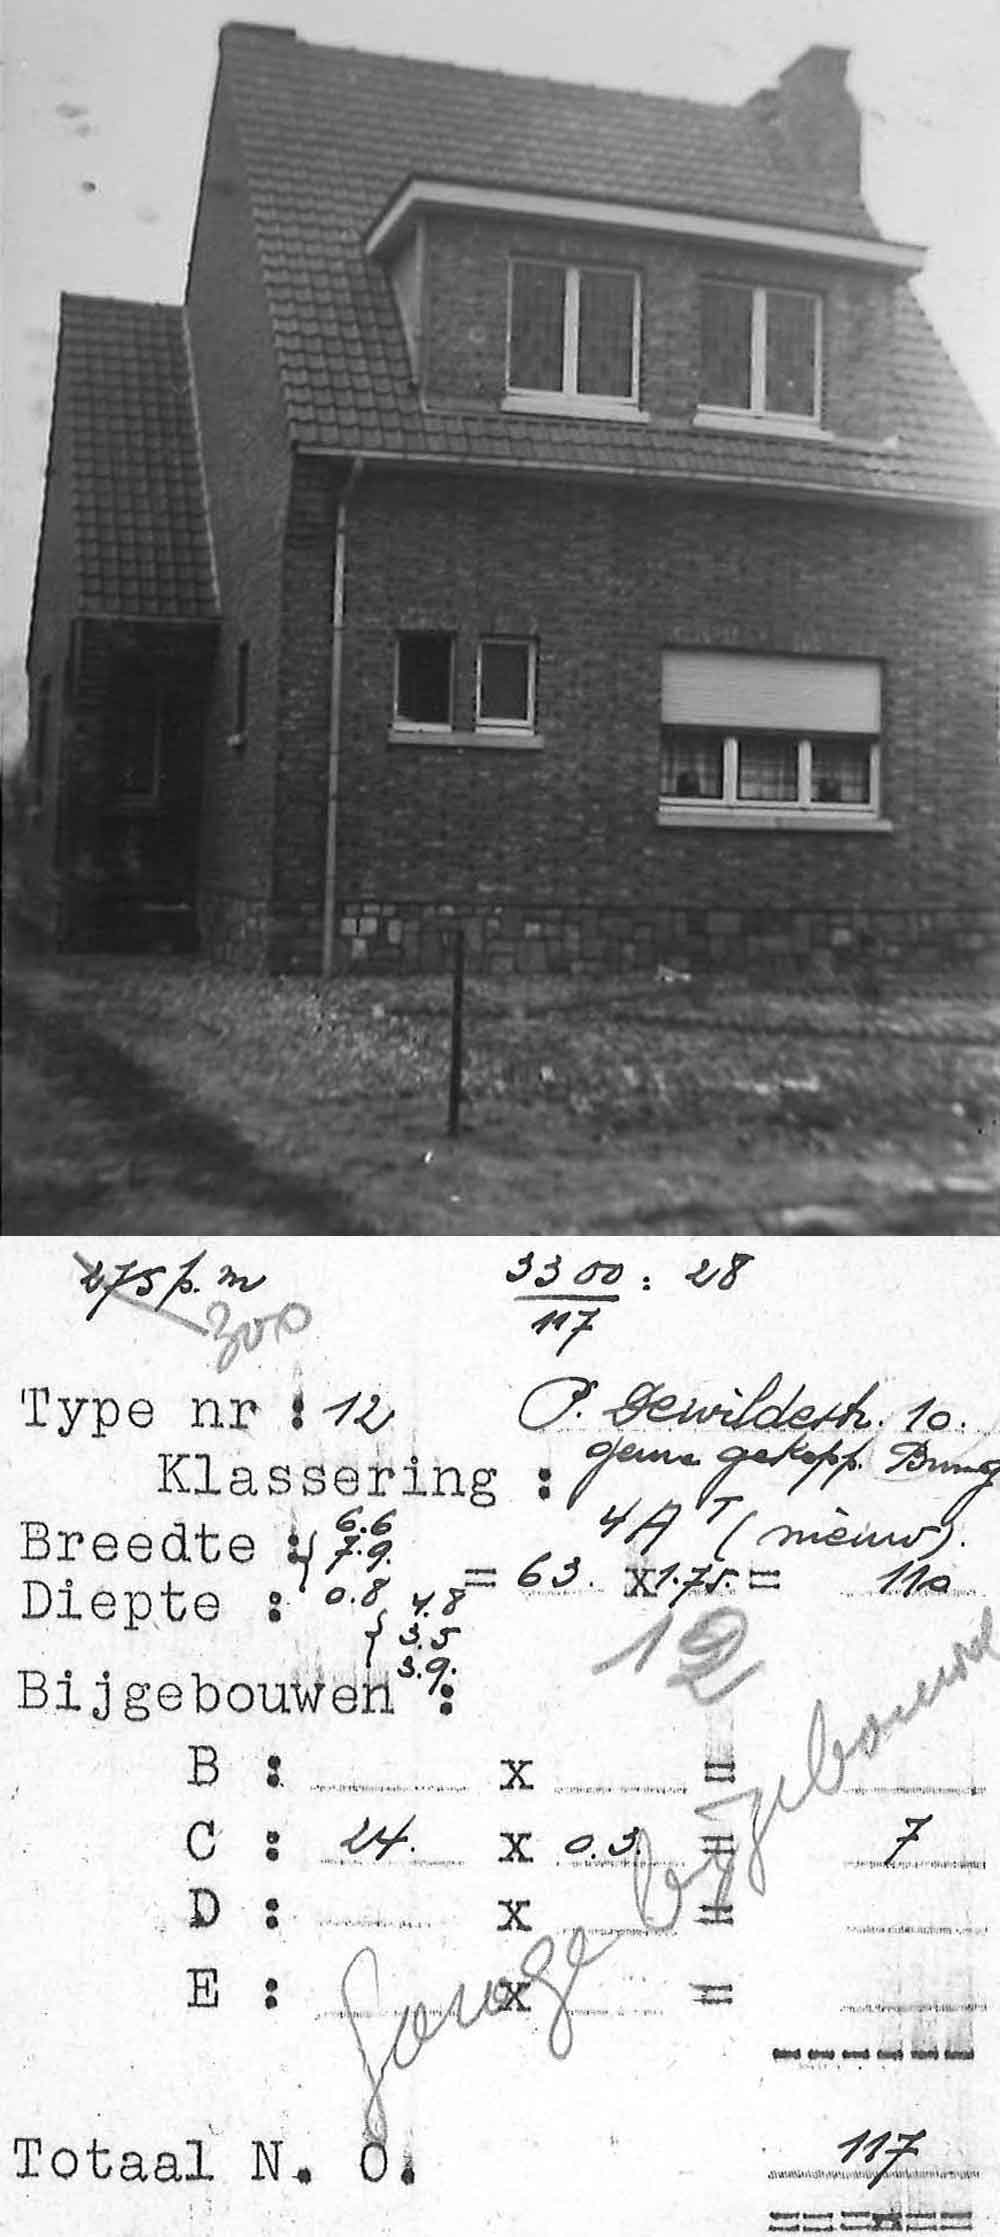 275 p. m
300
3300 : 28
117
Type nr : 12 P. Dewildestr. 10.
Klassering : gekopp.
4A T (nieuw).
Breedte : 6.6
7.9.
= 63. x 1.75. = 110
Diepte : 0.8 4.8
3.5
3.9.
12
Bijgebouwen :
B : x =
C : 24. x 0.3. = 7
D : x =
E : x =
garage bijgebouwd
Totaal N. O. 117